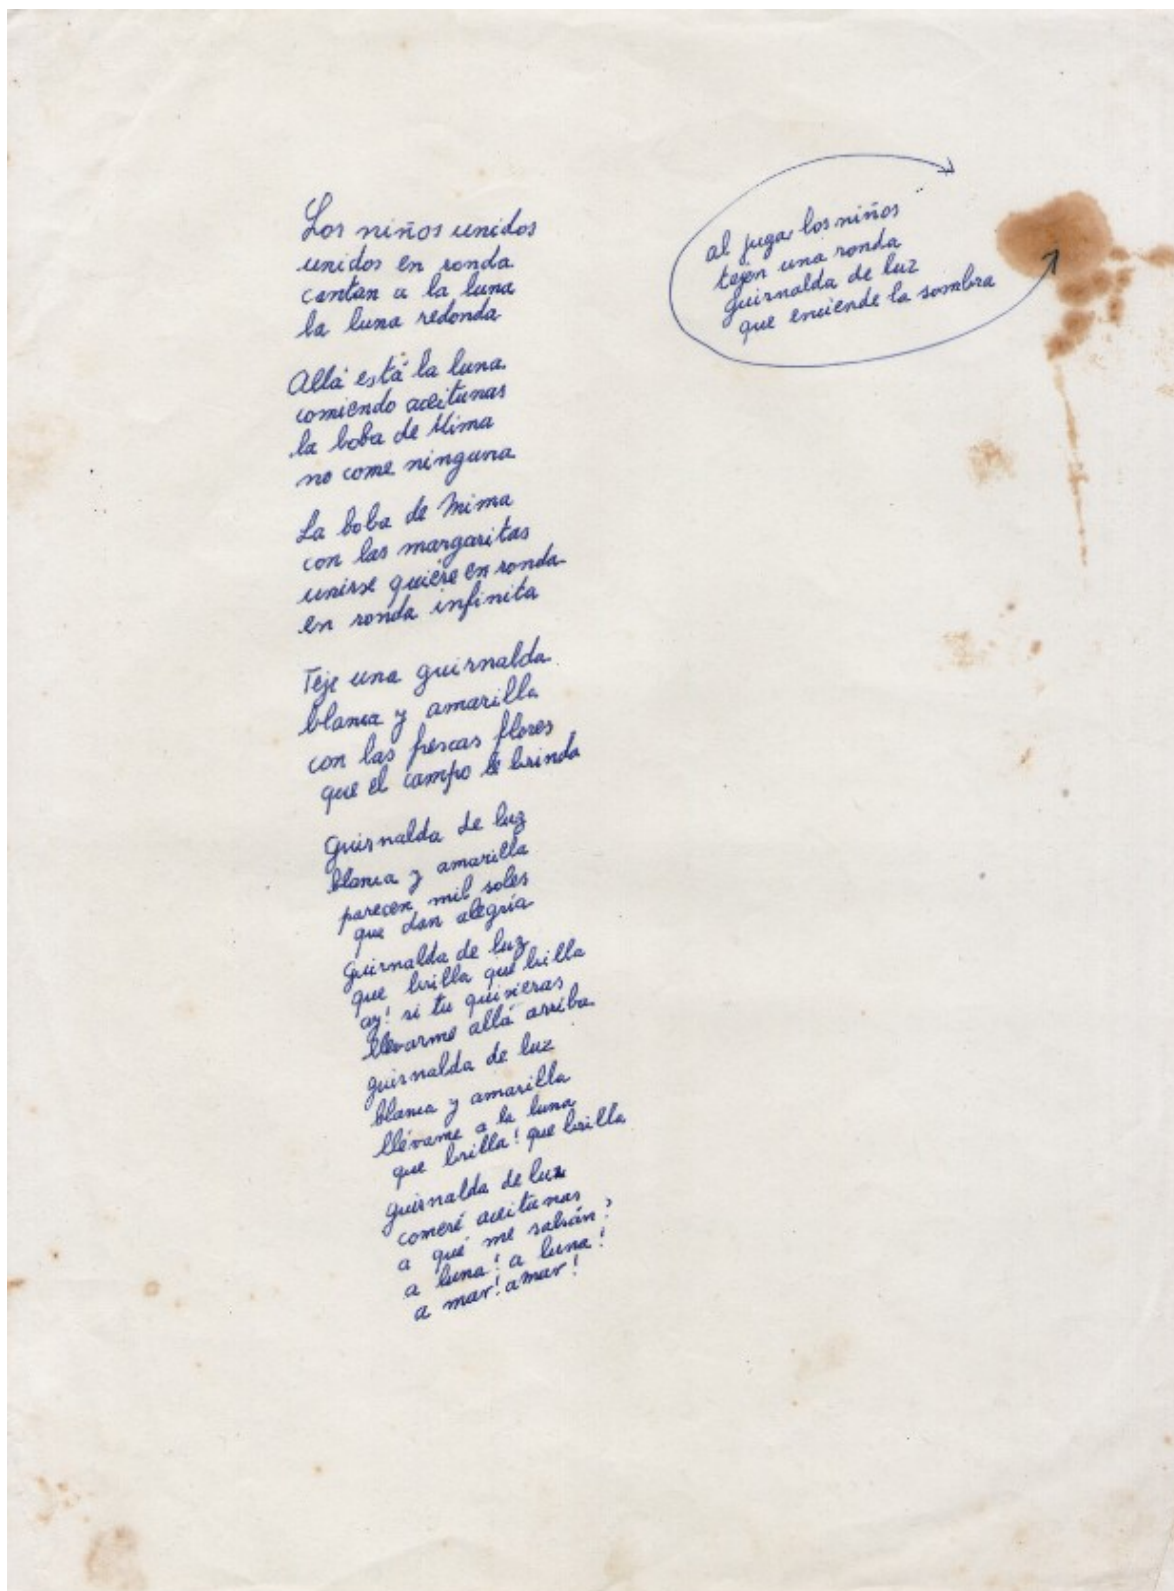 Los niños unidos
unidos en ronda
cantan a la luna
la luna redonda
Allá está la luna
comiendo aceitunas
la boba de Mima
no come ninguna
La boba de Mima
con las margaritas
unirse quiere en ronda
en ronda infinita
Teje una guirnalda
blanca y amarilla
con las frescas flores
que el campo le brinda
Guirnalda de luz
blanca y amarilla
parecen mil soles
que dan alegría
guirnalda de luz
que brilla que brilla
ay! si tu quisieras
llevarme allá arriba
guirnalda de luz
blanca y amarilla
llévame a la luna
que brilla! que brilla
guirnalda de luz
comeré aceitunas
a qué me sabrán?
a luna! a luna!
a mar! a mar!
al jugar los niños
tejen una ronda
guirnalda de luz
que enciende la sombra